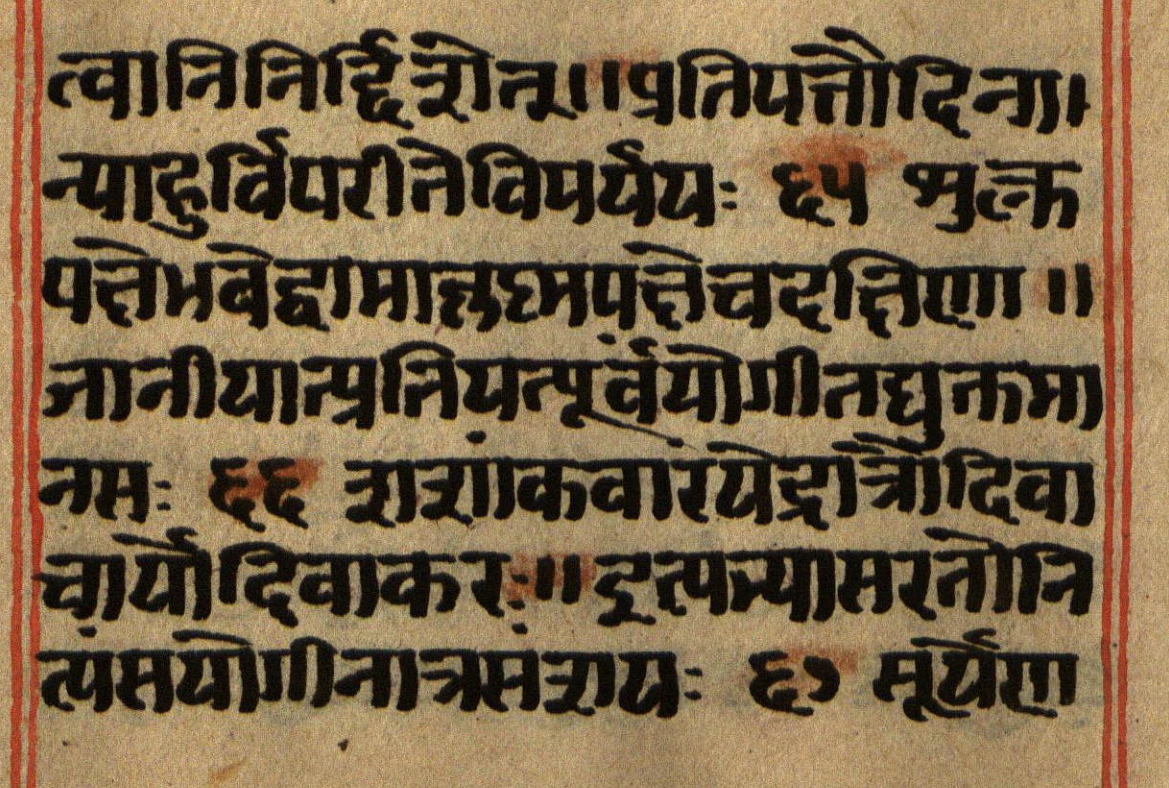 त्वानिनिर्द्दिशेत्॥प्रतिपत्तौदिना।
न्याहुर्विपरीतेविपर्ययः ६५ शुक्ल
पक्षेभवेद्वामाकृष्णपक्षेचदक्षिणा ॥
जानीयात्प्रतिपत्पूर्वंयोगीतद्युक्तमा
नसः ६६ शशांकवारयेद्रात्रौदिवा
चार्यौदिवाकरः॥इत्पभ्यासरतोनि
त्पंसयोगीनात्रसंशयः ६७ सूर्येण